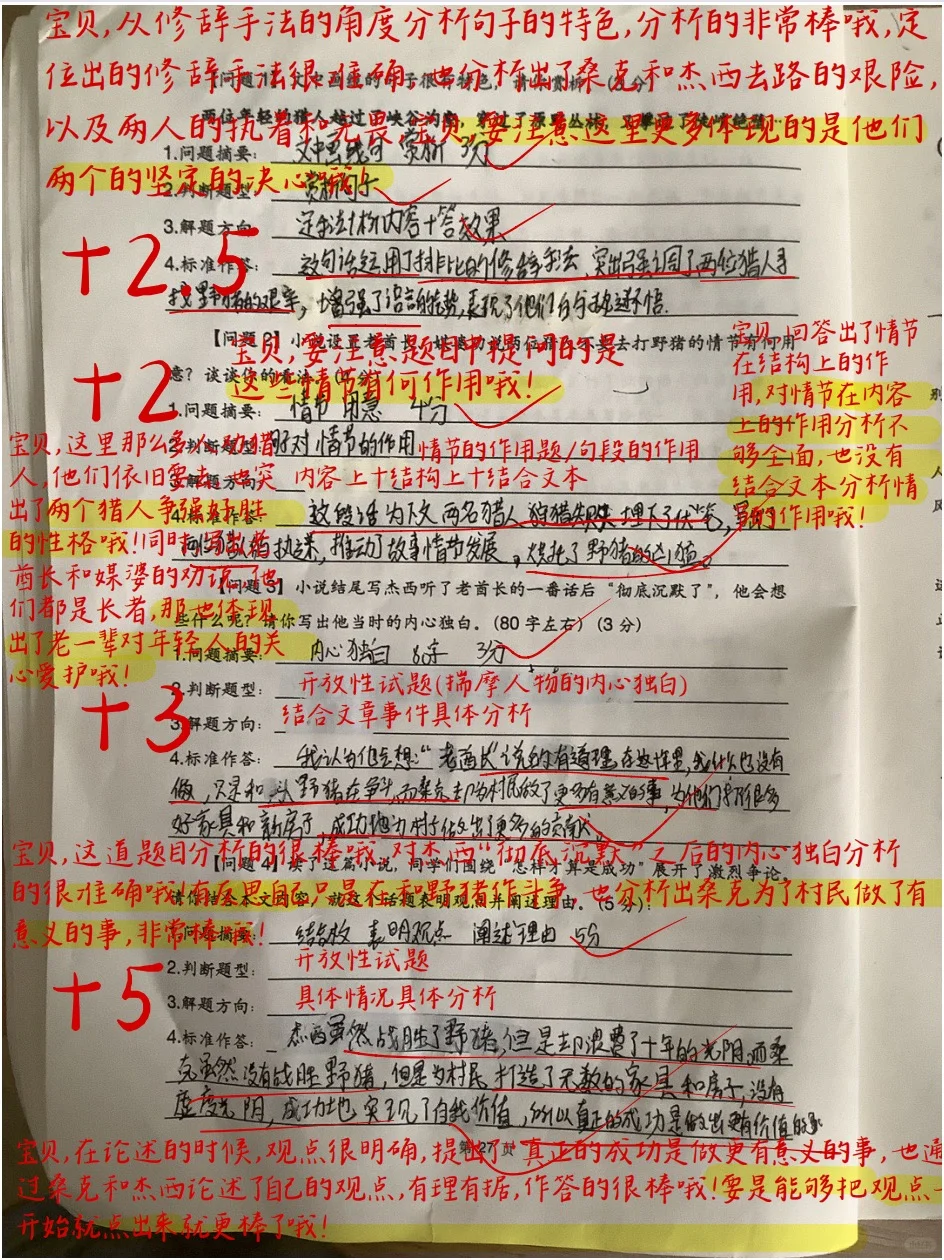 宝贝,从修辞手法的角度分析句子的特色,分析的非常棒哦,定
位出的修辞手法很准确,也分析出了桑克和杰西去路的艰险,
以及两人的执着和无畏,宝贝,要注意这里更多体现的是他们
两个的坚定的决心哦!
1.问题摘要: 文中画线句 赏析 3分
2.判断题型: 赏析句子
3.解题方向: 定手法+析内容+答效果
4.标准作答: 这句话运用了排比的修辞手法,突出强调了两位猎人寻
找野猪的艰辛,增强了语言的气势,表现了他们的执迷不悟.
+2.5
【问题2】小说设置老酋长、媒婆劝说两位猎人不要去打野猪的情节有何用
意?谈谈你的看法。(4分)
宝贝,要注意题目中提问的是
这些情节有何作用哦!
+2
1.问题摘要: 情节 用意 4分
2.判断题型: 情节的作用
情节的作用题/句段的作用
3.解题方向:
内容上+结构上+结合文本
4.标准作答: 这段话为下文两名猎人 埋下了伏笔,
执迷,推动了故事情节发展,烘托了野猪的凶猛。
宝贝,回答出了情节
在结构上的作
用,对情节在内容
上的作用分析不
够全面,也没有
结合文本分析情
节的作用哦!
宝贝,这里那么多人劝猎
人,他们依旧要去,也突
出了两个猎人争强好胜
的性格哦!同时
酋长和媒婆的劝说,他
们都是长者,那也体现
出了老一辈对年轻人的关
心爱护哦!
【问题3】小说结尾写杰西听了老酋长的一番话后“彻底沉默了”,他会想
些什么呢?请你写出他当时的内心独白。(80字左右)(3分)
1.问题摘要: 内心独白 80字 3分
+3
2.判断题型: 开放性试题(揣摩人物的内心独白)
3.解题方向: 结合文章事件具体分析
4.标准作答: 我认为他会想:“老酋长”说的有道理,在这十年里,我什么也没有
做,只是和一头野猪在争斗,而桑克却为村民做了更多有意义的事,为他们打了很多
好家具和新房子,成功地为村子做出了更多的贡献。
宝贝,这道题目分析的很棒哦,对杰西“彻底沉默”之后的内心独白分析
的很准确哦!有反思自己只是在和野猪作斗争,也分析出桑克为了村民做了有
意义的事,非常棒哦!
【问题4】读了这篇小说,同学们围绕“怎样才算是成功”展开了激烈争论。
请你结合本文内容,就这个话题表明观点并阐述理由。(5分):
1.问题摘要: 结合文 表明观点 阐述理由 5分
+5
2.判断题型: 开放性试题
3.解题方向: 具体情况具体分析
4.标准作答: 杰西虽然战胜了野猪,但是却浪费了十年的光阴,而桑
克虽然没有战胜野猪,但是为村民打造了无数的家具和房子,没有
虚度光阴,成功地实现了自我价值,所以真正的成功是做出更有价值的事
第27页
宝贝,在论述的时候,观点很明确,提出了真正的成功是做更有意义的事,也通
过桑克和杰西论述了自己的观点,有理有据,作答的很棒哦!要是能够把观点一
开始就点出来就更棒了哦!